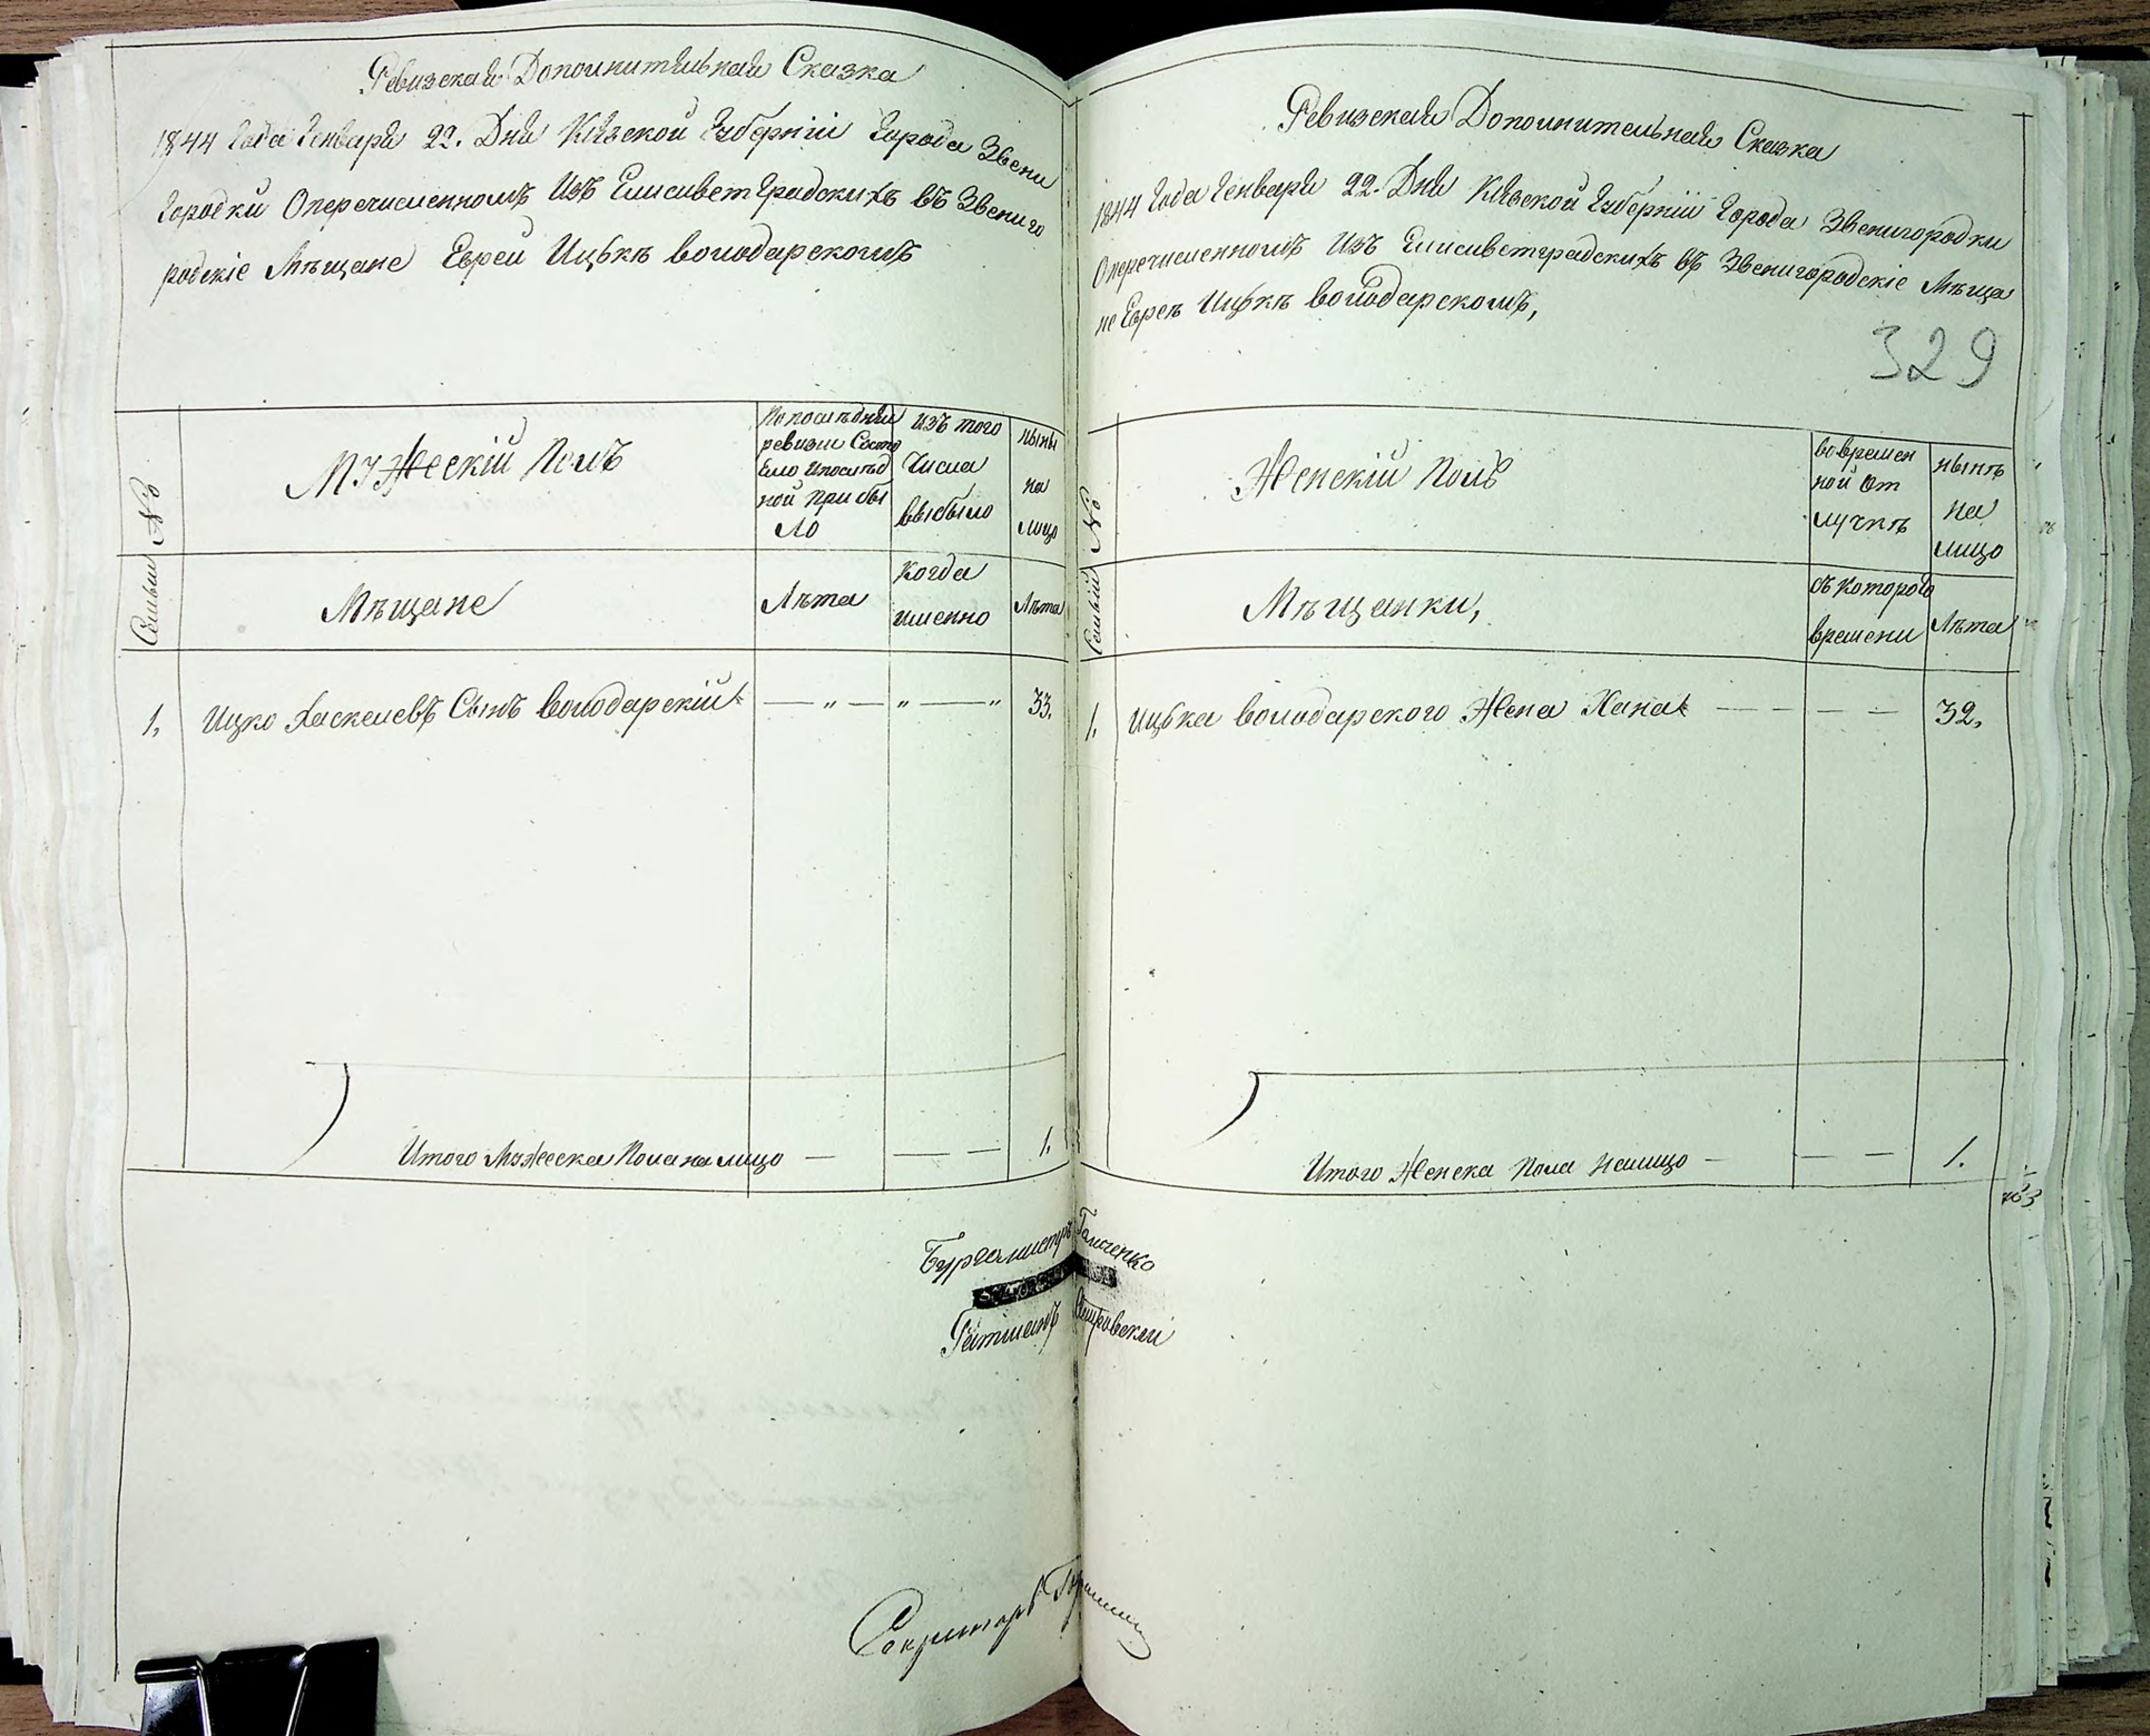 Ревизская Дополнительная Сказка
1844 Года Генваря 22. Дня Кіевской Губерніи Города Звени
городки Оперечисленномъ Изъ Елисаветградскихъ въ Звениго
родскіе Мѣщане Евреи Ицькѣ Володарскомъ
Семьи №
МУЖескій Полъ
По последней
ревизіи Состо
яло ипослѣд
ной прибы
ло
изъ того
Числа
выбыло
ныны
на
лицо
Мѣщане
Лѣта
Когда
именно
Лѣта
1, Ицко Хаскелевъ Сынъ Володарскій — „ — „ — „ 33.
Итого Мужеска Пола на лицо — — — 1.
Ревизская Дополнительная Сказка
1844 Года Генваря 22. Дня Кіевской Губерніи Города Звенигородки
Оперечисленномъ Изъ Елисаветградскихъ въ Звенигородскіе Мѣща
не Евреѣ Ицькѣ Володарскомъ,
329
Семьи №
Женскій Полъ
вовремен
ной От
лучкѣ
нынѣ
на
лицо
Мѣщанки,
съ которого
времени
Лѣта
1. Ицька Володарского Жена Хана — — — — 32,
Итого Женска Пола налицо — — — 1.
Бургомистръ
Ратманъ
Секретарь